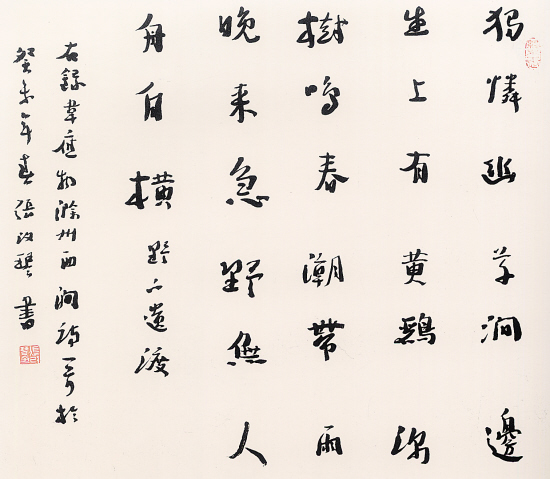 獨憐幽草澗邊
生上有黄鸝深
樹鳴春潮帶雨
晚来急野無人
舟自横 野下遺渡
右録韋應物滁州西澗詩一首於
癸未年春張改琴書